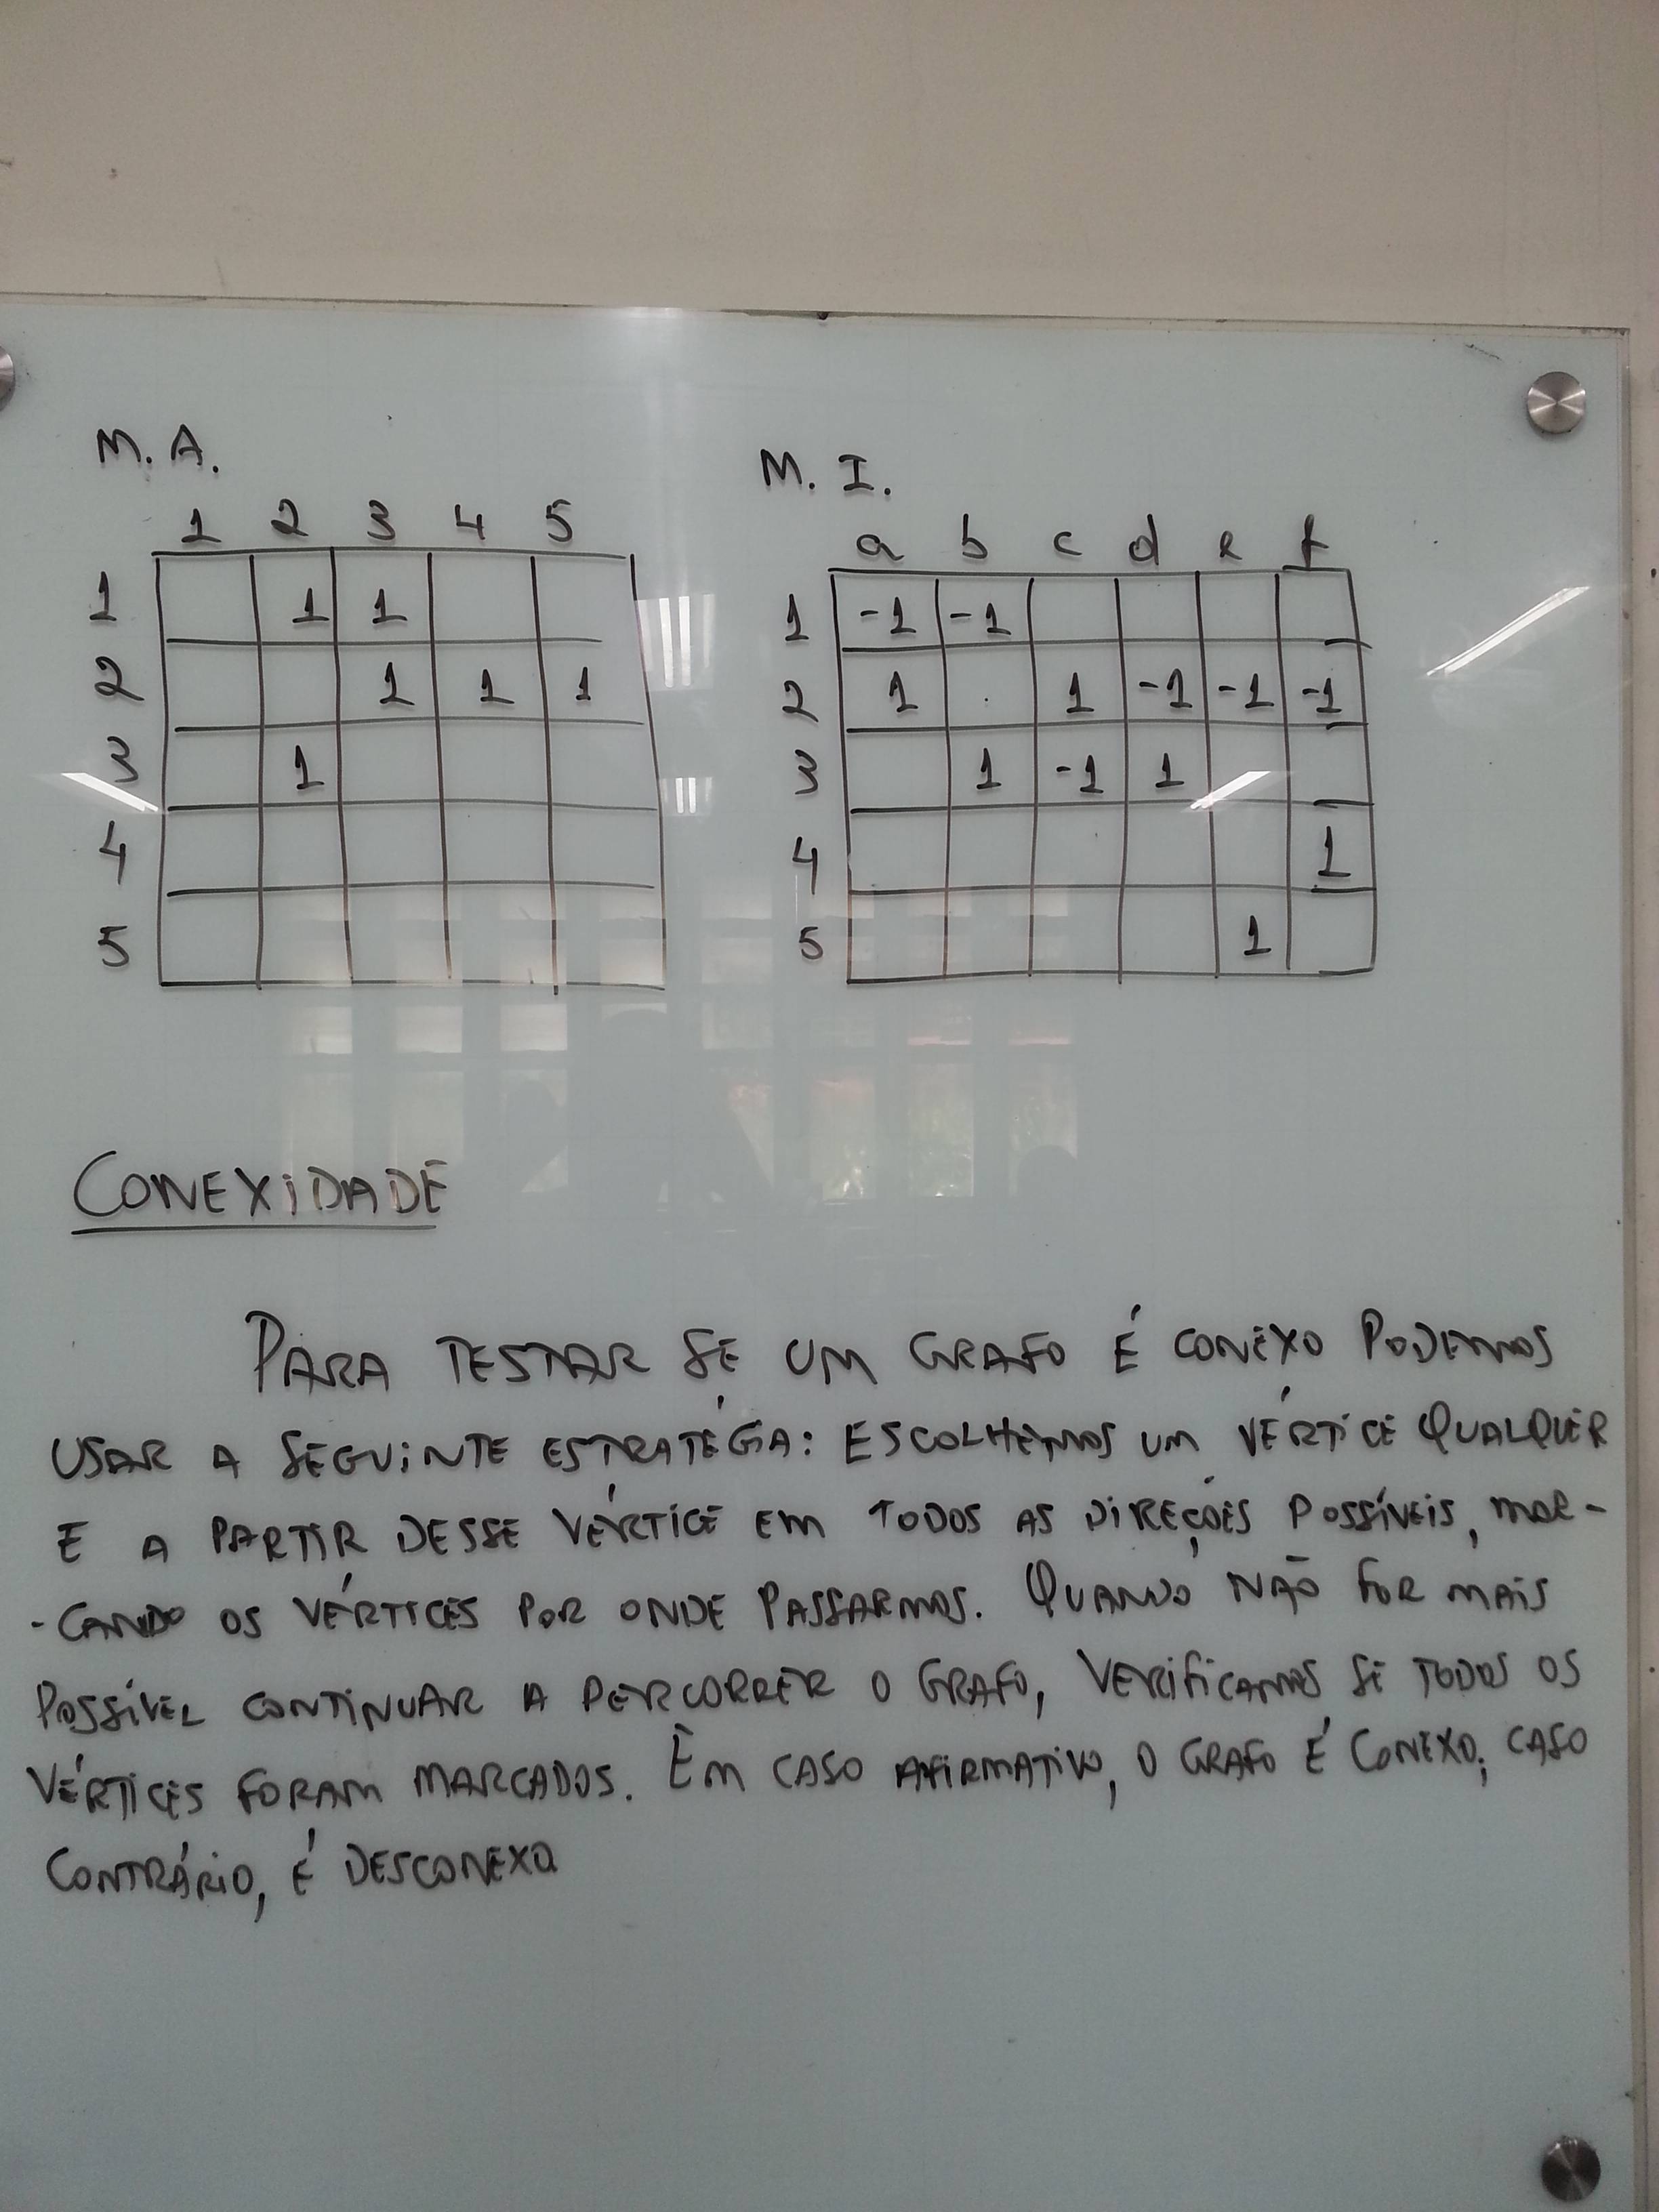 M. A.
1 2 3 4 5
1 1 1
2 1 1 1
3 1
4
5
M. I.
a b c d e f
1 -1 -1
2 1 1 -1 -1 -1
3 1 -1 1
4 1
5 1
CONEXIDADE
PARA TESTAR SE UM GRAFO É CONEXO PODEMOS
USAR A SEGUINTE ESTRATÉGIA: ESCOLHEMOS UM VÉRTICE QUALQUER
E A PARTIR DESSE VÉRTICE EM TODOS AS DIREÇÕES POSSÍVEIS, MAR-
-CANDO OS VÉRTICES POR ONDE PASSARMOS. QUANDO NÃO FOR MAIS
POSSÍVEL CONTINUAR A PERCORRER O GRAFO, VERIFICAMOS SE TODOS OS
VÉRTICES FORAM MARCADOS. EM CASO AFIRMATIVO, O GRAFO É CONEXO; CASO
CONTRÁRIO, É DESCONEXO